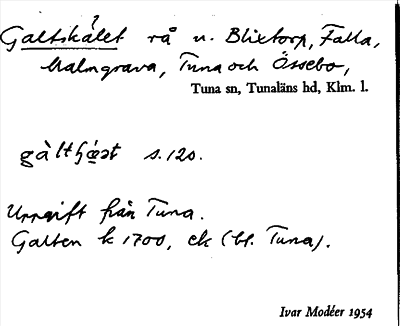 Galtskålet rå n. Blixtorp, Falla,
Malmgrava, Tuna och Össebo,
Tuna sn, Tunaläns hd, Klm. l.
s. 120.
Uppgift från Tuna.
Galten k 1700, ek (bl. Tuna).
Ivar Modéer 1954